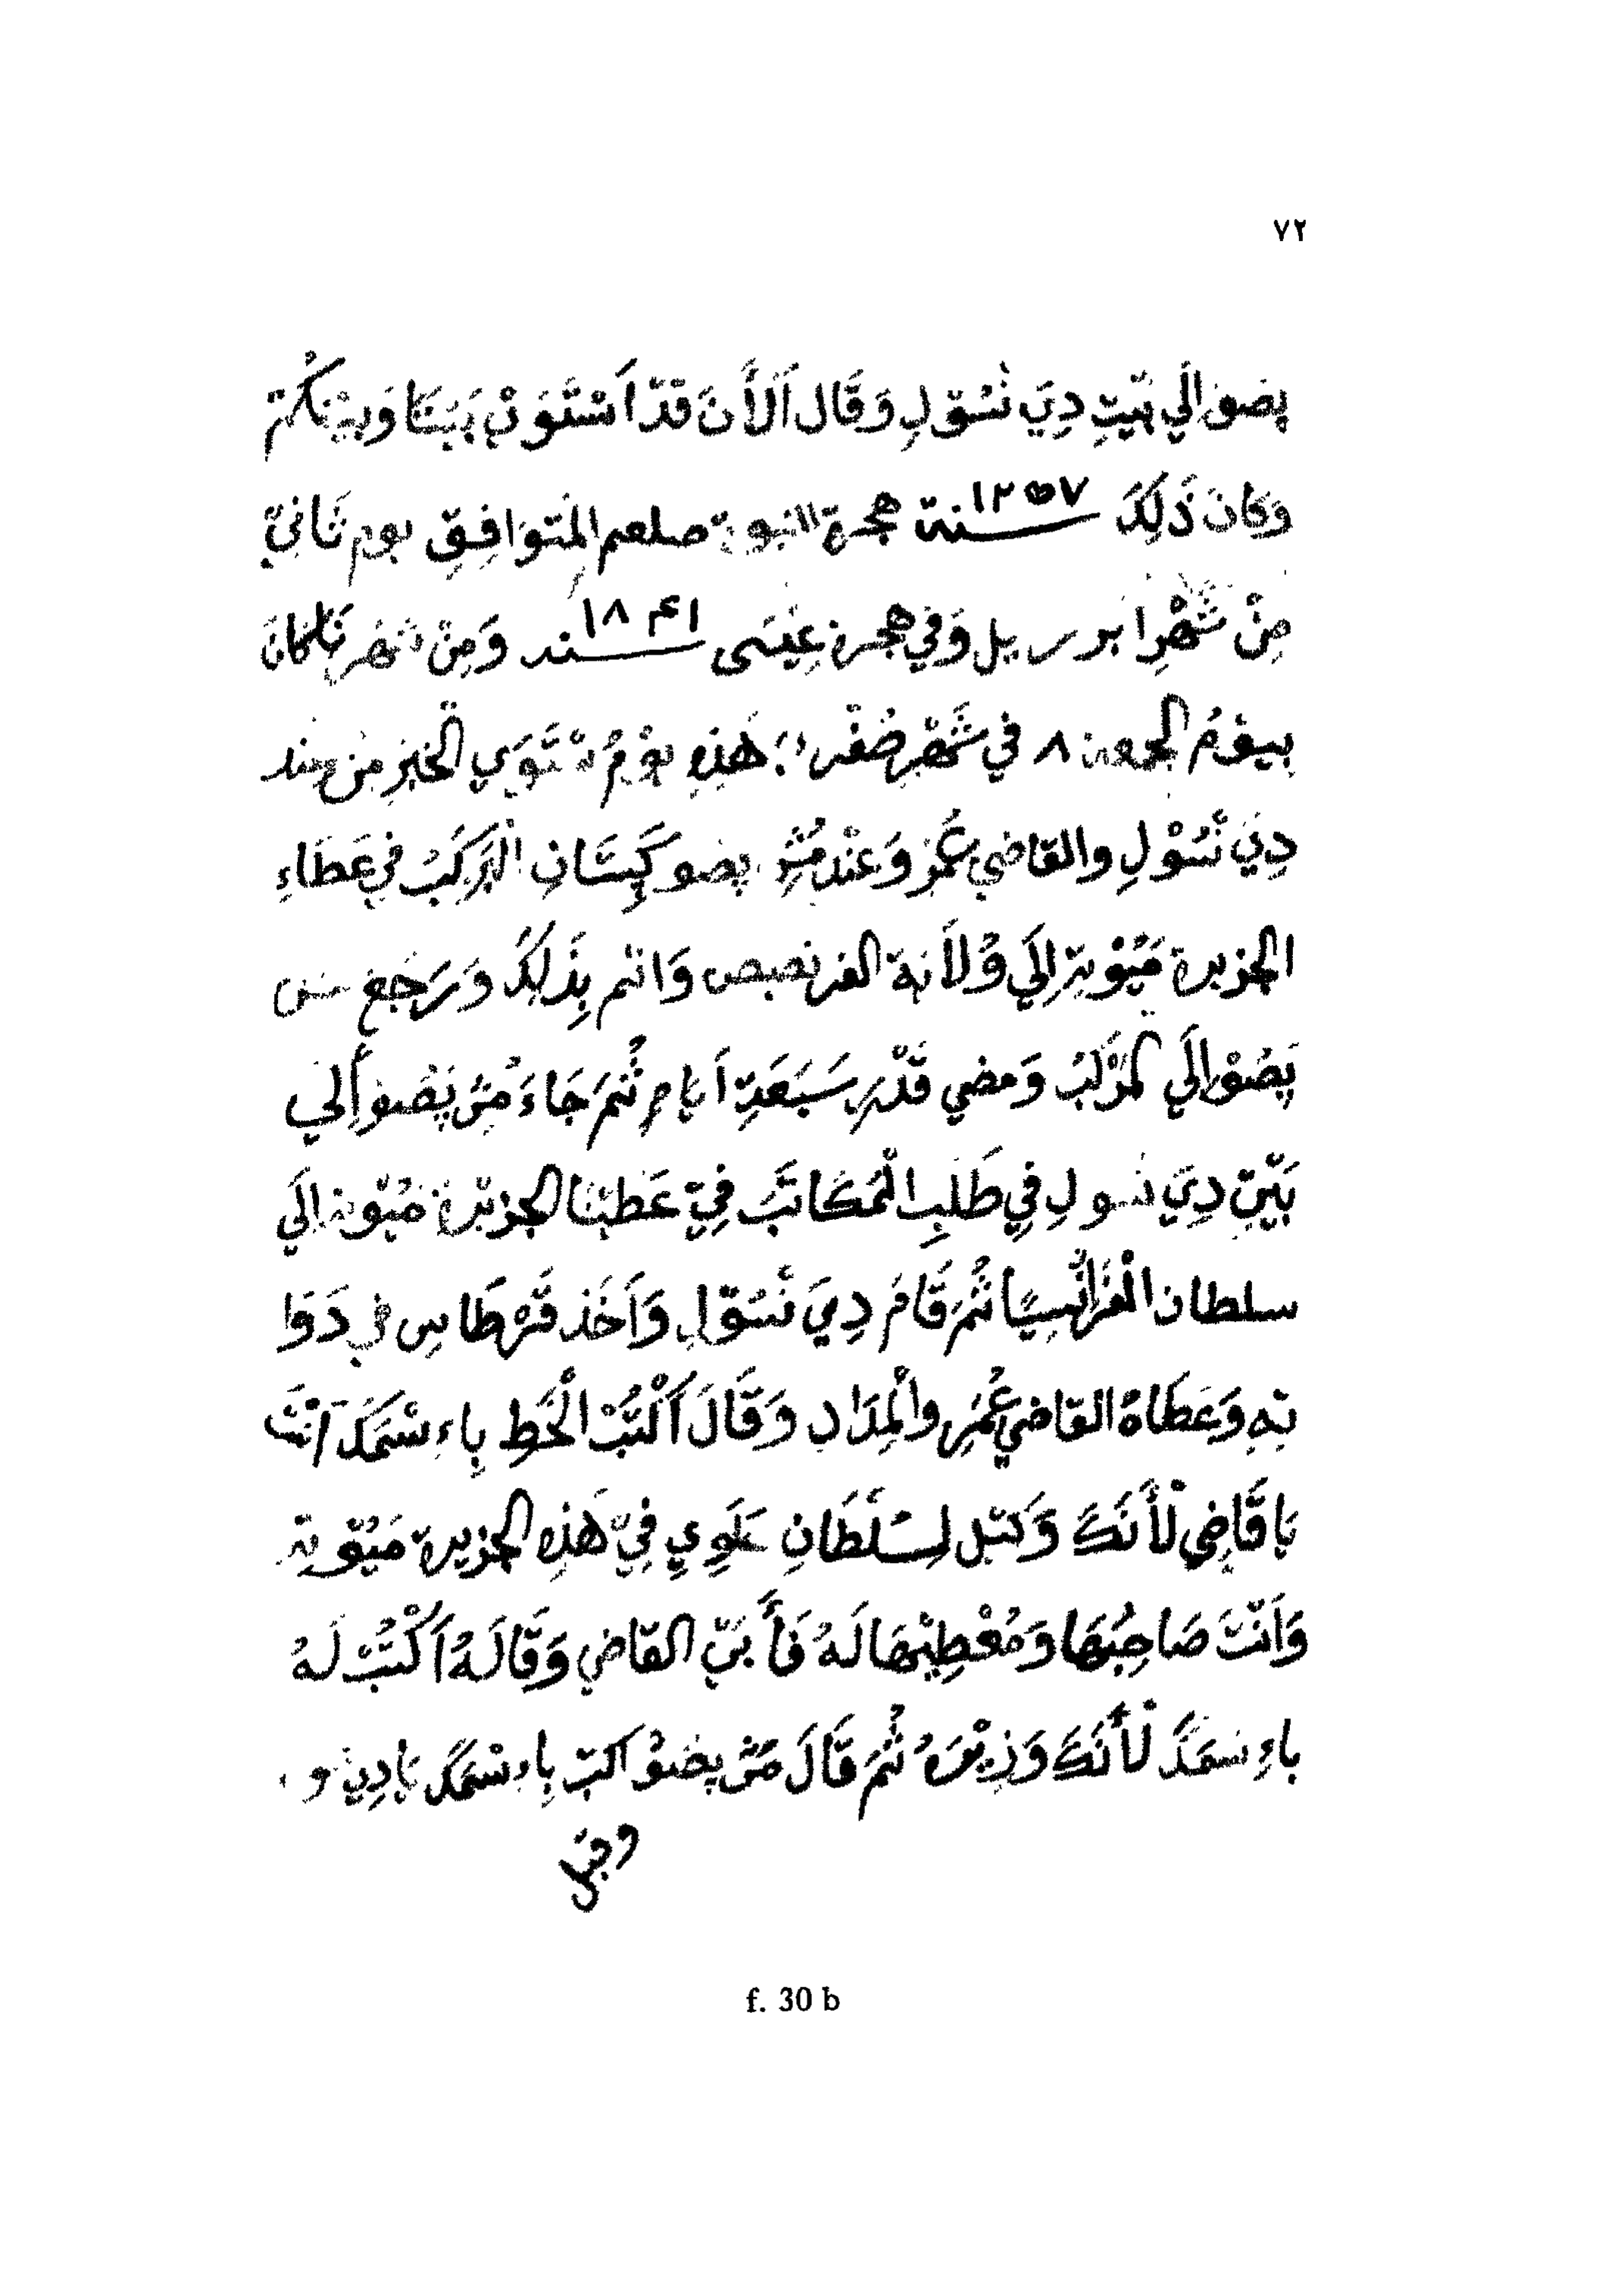 ٧٢
پضوا إلَي بَيْتِ دِيَ نْسُوْلِ وَقَال اَلْأَنَ قَدْ اَسْتَوَىْ بَيْنَنَا وَبَيْنَكُمْ
وَكَانَ ذَلِكَ سنة ١٢٥٧ هجرة النبوية صلعم المتَوَافِقِ يوم ثَانِيْ
مِنْ شَهْرِ ابريل وَفِي هجرة عِيْسَى سنه ١٨٤١ وَمِنْ شهر نَا كَانَ
بيَوْمُ الجمعة ٨ في شَهْرِ صَفَر هَذِهِ يَوْمُ سْتَوَي الخَبَرِ مِن عند
دِيَ نْسُوْلِ والقاضي عُمَرْ وَعَنْد مُسْ پضو كَپِتَانِ المَرْكَبُ في عَطَاءِ
الجزيرة مَيُوْتِه إلَي وُلَايَة الفرنصيص وَاتم بِذَلِكَ وَرَجَعَ مس
پَضُوْا إلَي المَرْكَبُ وَمضي قَدْرِ سَبَعَةِ اَيامٍ ثُمَ جَاءَ مُسْ پَضُوا إلَي
بَيْتِ دِيَ نسولِ فِي طَلَبِ الْمَكَاتَبُ فِيْ عَطِيْنَا الجزيْرَة مَيُوْتِه إلَي
سلطان الْفَرَانْسِيَا ثُمَ قَامَ دِيَ نْسُوْلِ وَاَخَذ قَرْطَاسِ في دَوَا
تِهِ وَعَطَاهُ القاضي عُمَرِ والْمِدَادِ وَقَالَ اَكْتُبْ الْخَطِ بِاءِسْمَكَ اَنْتَ
يَا قَاضِي لْأَنَكَ وَكيْل لِسُلْطَانِ عَلَوِيِ فِيْ هَذِهِ الجزيرة مَيُوْتِه
وَاَنْتَ صَاحِبُهَا وَمُعْطِيْهَا لَهُ فَأَبَيْ القاضي وَقَالَهُ اَكْتُبْ لَهُ
باءِسْمَكَ لْأَنَكَ وَزِيْرَهُ ثُمَ قَالَ مَسْ پضوْ اكتبْ بِاءِسْمَكَ يَا دِيَ
وفي
f. 30 b